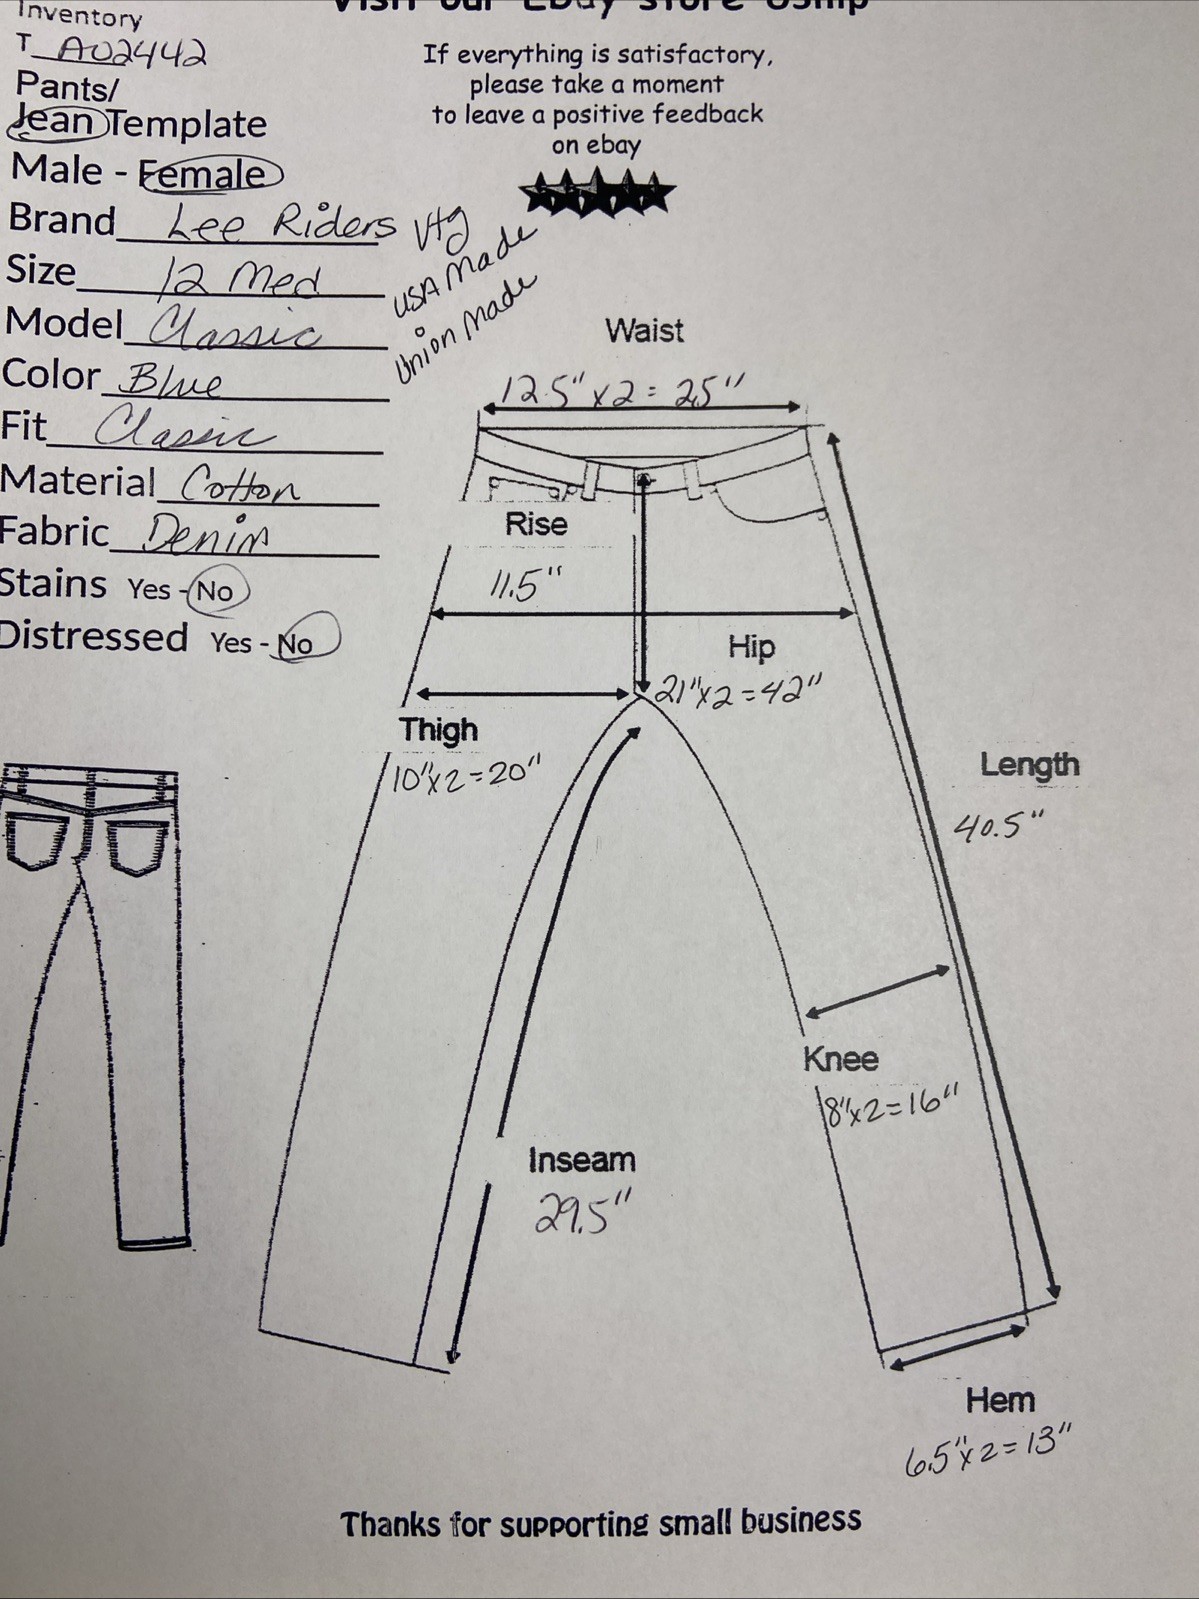 Visit our Ebay store
Inventory
T A02442
Pants/
Jean Template
Male - Female
Brand Lee Riders Vtg
USA Made
Union Made
Size 12 Med
Model Classic
Color Blue
Fit Classic
Material Cotton
Fabric Denim
Stains Yes - No
Distressed Yes - No
If everything is satisfactory,
please take a moment
to leave a positive feedback
on ebay
Waist
12.5" x2 = 25"
Rise
11.5"
Hip
21"x2=42"
Thigh
10"x2=20"
Length
40.5"
Knee
8"x2=16"
Inseam
29.5"
Hem
6.5"x2=13"
Thanks for supporting small business